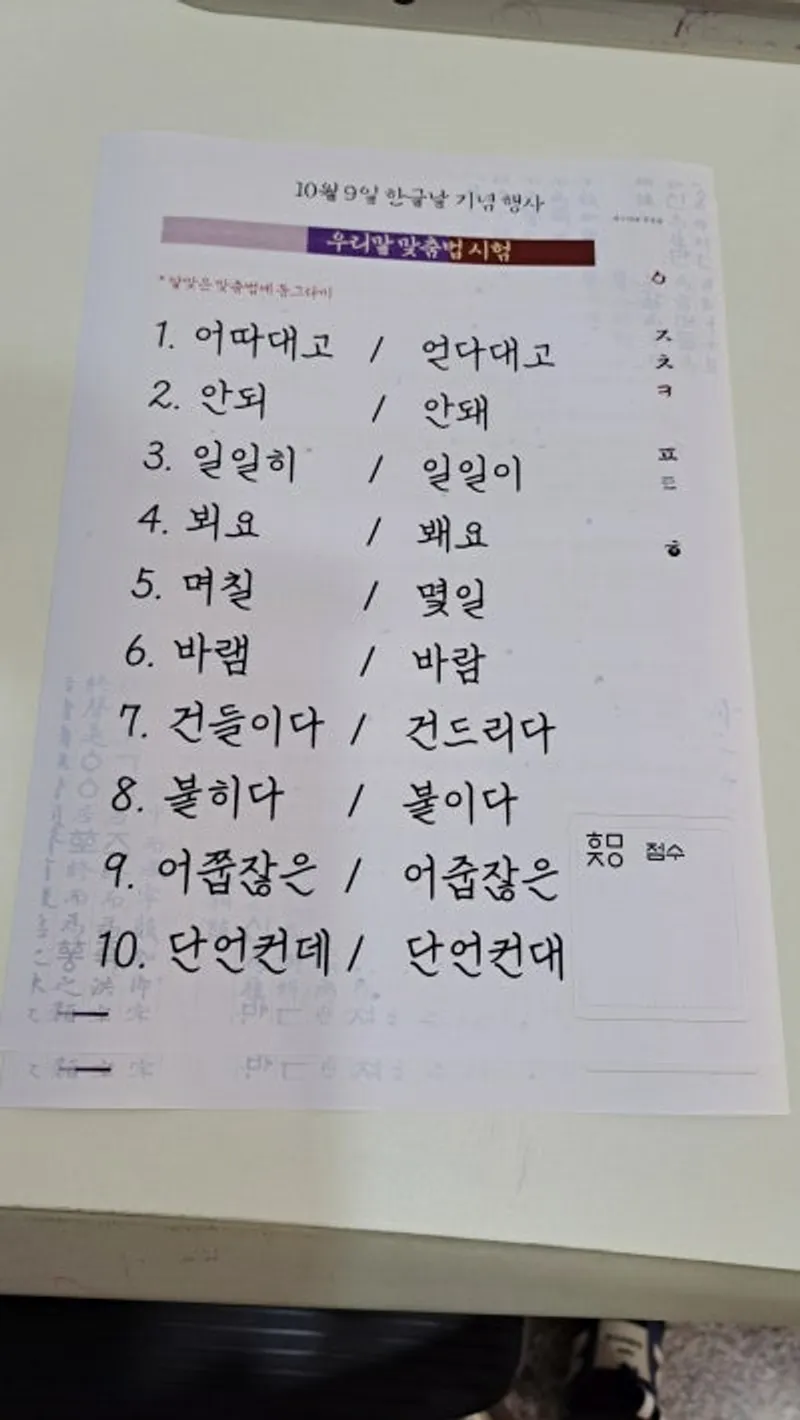 10월 9일 한글날 기념 행사
우리말 맞춤법 시험
* 알맞은 맞춤법에 동그라미
1. 어따대고 / 얻다대고
2. 안되 / 안돼
3. 일일히 / 일일이
4. 뵈요 / 봬요
5. 며칠 / 몇일
6. 바램 / 바람
7. 건들이다 / 건드리다
8. 붙히다 / 붙이다
9. 어쭙잖은 / 어줍잖은
10. 단언컨데 / 단언컨대
ㅇ
ㅈ
ㅊ
ㅋ
ㅍ
ㅎ
점수